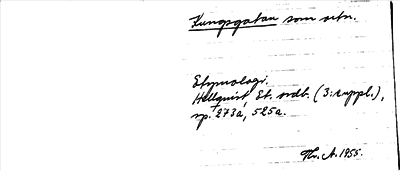 Kungsgatan som ortn.
Etymologi.
Hellquist, Et. ordb. (3:e uppl.),
sp. 273a, 525a.
A. 1955.